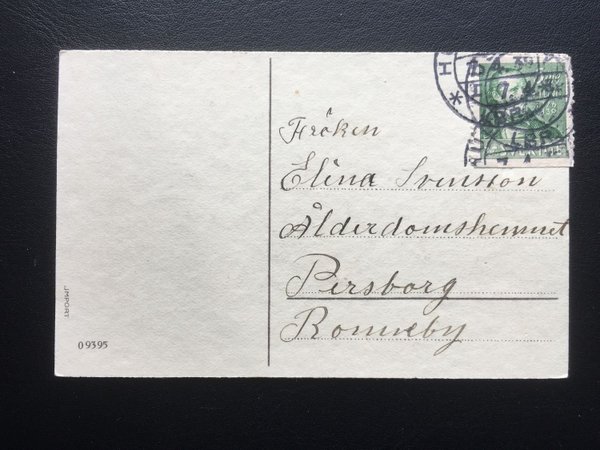 Fröken
Elina Svensson
Ålderdomshemmet
Persborg
Ronneby
IMPORT
09395
LBB